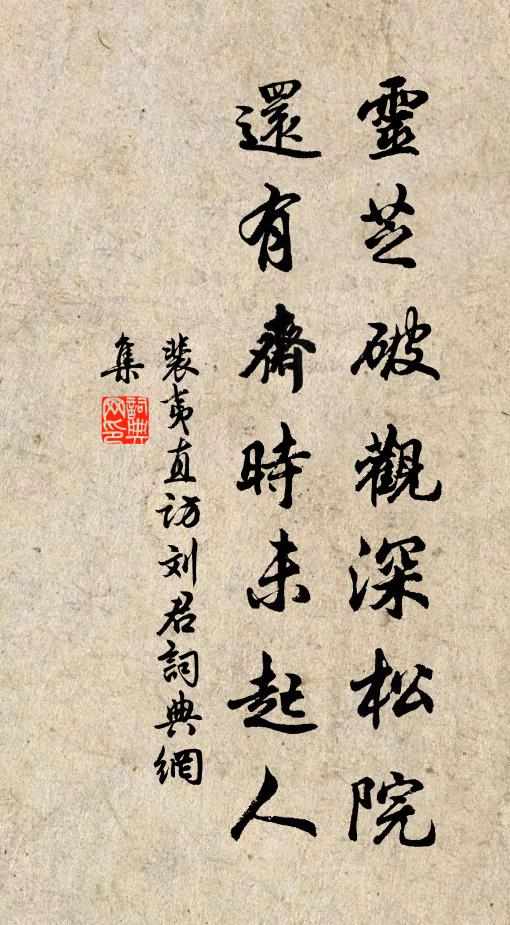 靈芝破觀深松院
還有齋時未起人
裴夷直访刘君詞典網
集
詞典
网印